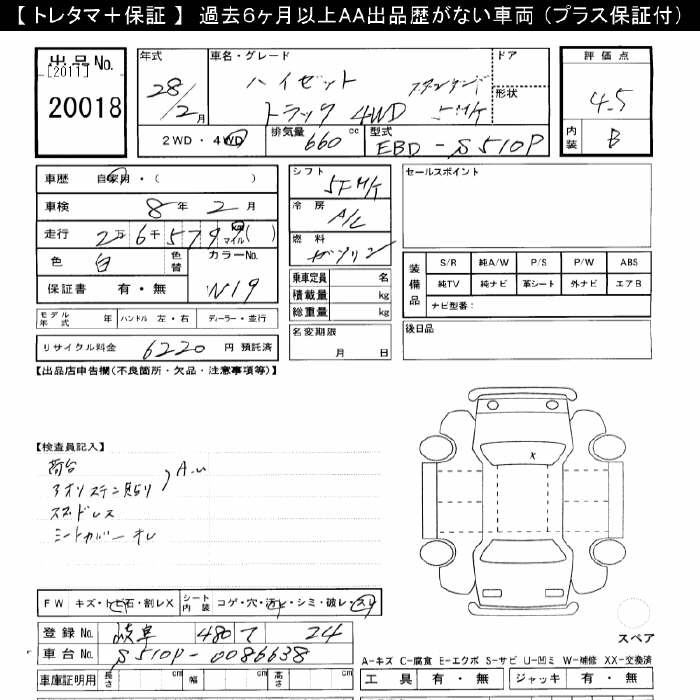 【トレタマ＋保証】 過去6ヶ月以上AA出品歴がない車両（プラス保証付）
出品No.
[2011]
20018
年式
28/2月
車名・グレード
ハイゼット
トラック 4WD スタンダード 5MK
ドア
形状
2WD・4WD
排気量 660 cc
型式 EBD-S510P
評価点
4.5
内装 B
車歴 自家用・( )
車検 8年 2月
走行 2万 6千 5 7 9 9 km マイル ( )
色 白 色替 カラーNo.
N19
保証書 有・無
モデル年式 年 ハンドル 左・右 ディーラー・並行
リサイクル料金 6220 円 預託済
シフト 5FM/T
冷房 A/C
燃料 ガソリン
乗車定員 名
積載量 kg
総重量 kg
名変期限
月 日
セールスポイント
装備品
S/R 純A/W P/S P/W ABS
純TV 純ナビ 革シート 外ナビ エアB
ナビ型番：
後日品
【出品店申告欄(不良箇所・欠品・注意事項等)】
【検査員記入】
荷台
アオリステン貼り
スタッドレス
シートカバー
FW キズ・トビ石・割レX シート内装 コゲ・穴・汚レ・シミ・破レ・スリ
登録No. 岐阜 480 て 24
車台No. S510P-0086638
車庫証明用 長さ cm 幅 cm 高さ cm
x
スペア
A-キズ C-腐食 E-エクボ S-サビ U-凹ミ W-補修 XX-交換済
工具 有・無 ジャッキ 有・無